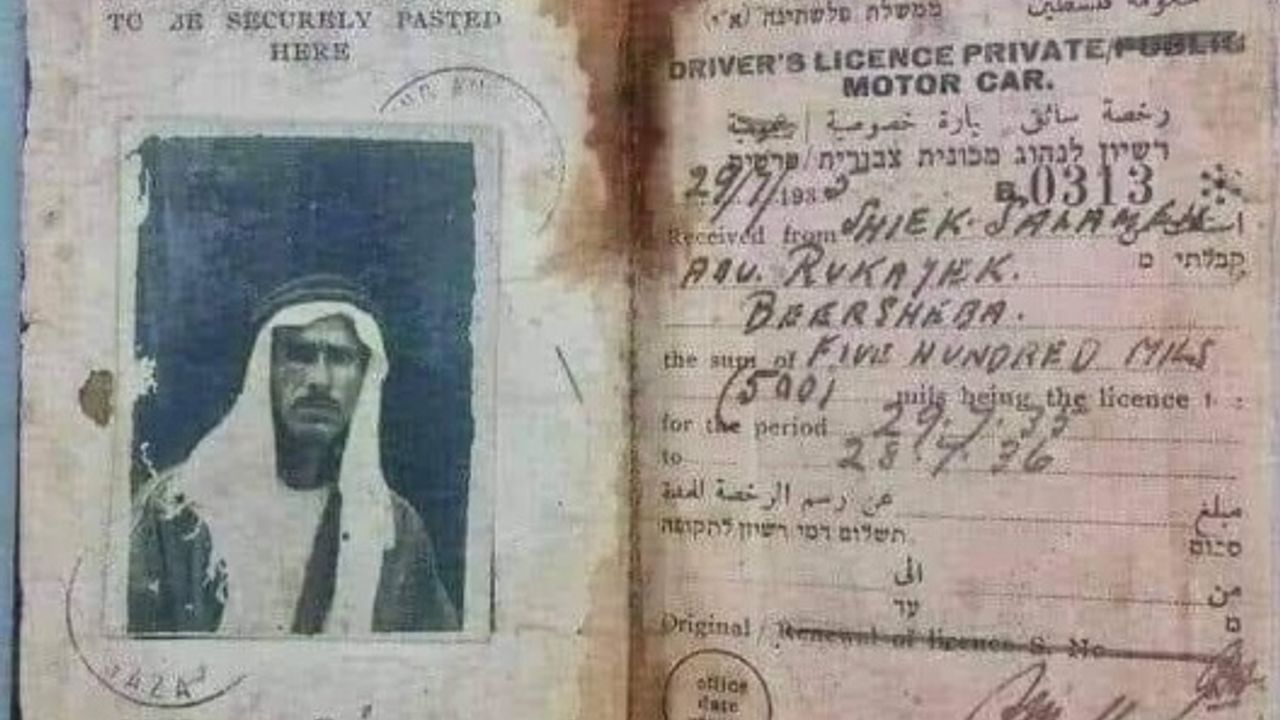 TO BE SECURELY PASTED
HERE
GAZA
ממשלת פלשתינה (א״י)
حكومة فلسطين
DRIVER'S LICENCE PRIVATE/PUBLIC
MOTOR CAR.
رخصة سائق سيارة خصوصية / عمومية
רשיון לנהוג מכונית צבורית/פרטית
29/7/1935 B. 0313
Received from SHIEK. SALAMEH
קבלתי מ
ABU. RUKAYEK.
BEERSHEBA.
the sum of FIVE HUNDRED MILS
(500) mils being the licence
for the period 29.7.35
to 28.7.36
عن رسم الرخصة للمدة مبلغ
תשלום דמי רשיון לתקופה סכום
الى من
עד מ
Original / Renewal of licence S. No
office
date